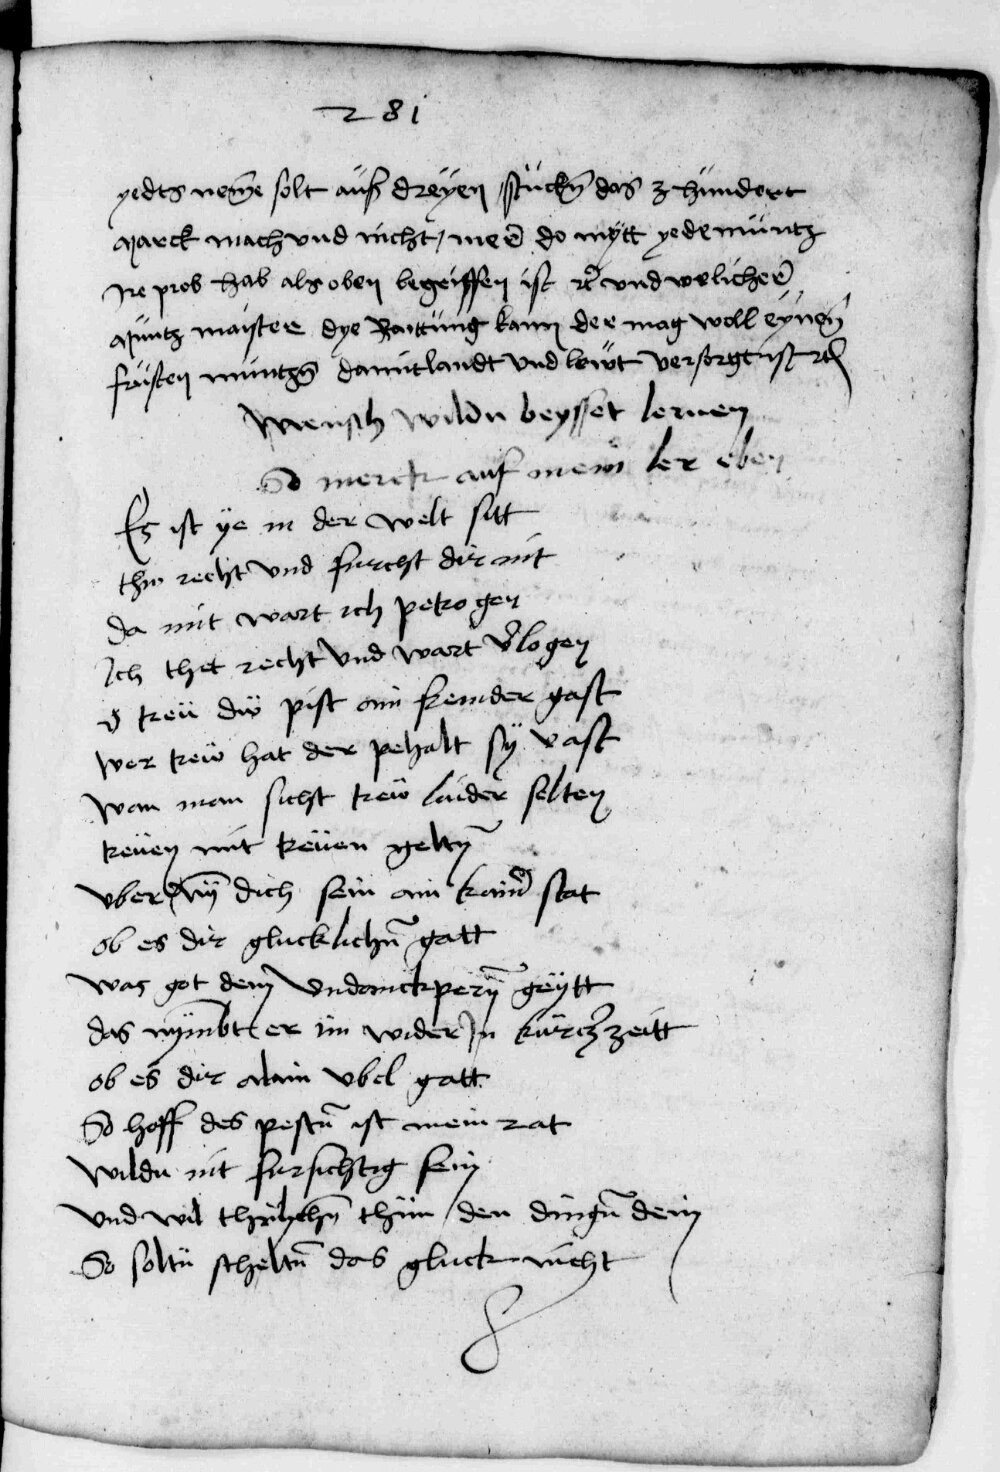 281
yedts neme solt auß dreyen stuckn das 3 hundert
Marck mach und nicht mer do mytt yede müntz
Ire prob hab als oben begriffen ist rc und welicher
Müntz maister dye Raittüng kann der mag woll eynem
fursten müntzn damit landt und lewt versorgt ist rc
Mensch wildu weysset lernen
So merck auf mein ler eben
Es ist ye in der welt sitt
thw recht und furcht dir nit
da mit wart ich petrogen
Ich thet recht und wart vlogen
O treü dw pist ain fremder gast
wer trew hat der pehalt sy vast
wan man sicht trew laider selten
treüen mit treüen geltn
vber nym dich sein an kainer stat
ob es dir glucklichn gatt
was got dem undanckpern geytt
das nymbt er im wider In kurcz zeitt
ob es dir alain vbel gatt
So hoff des pestn ist mein rat
wildu nit fursichtig sein
und wil thün den dingn dein
So soltu scheltn das gluck nicht